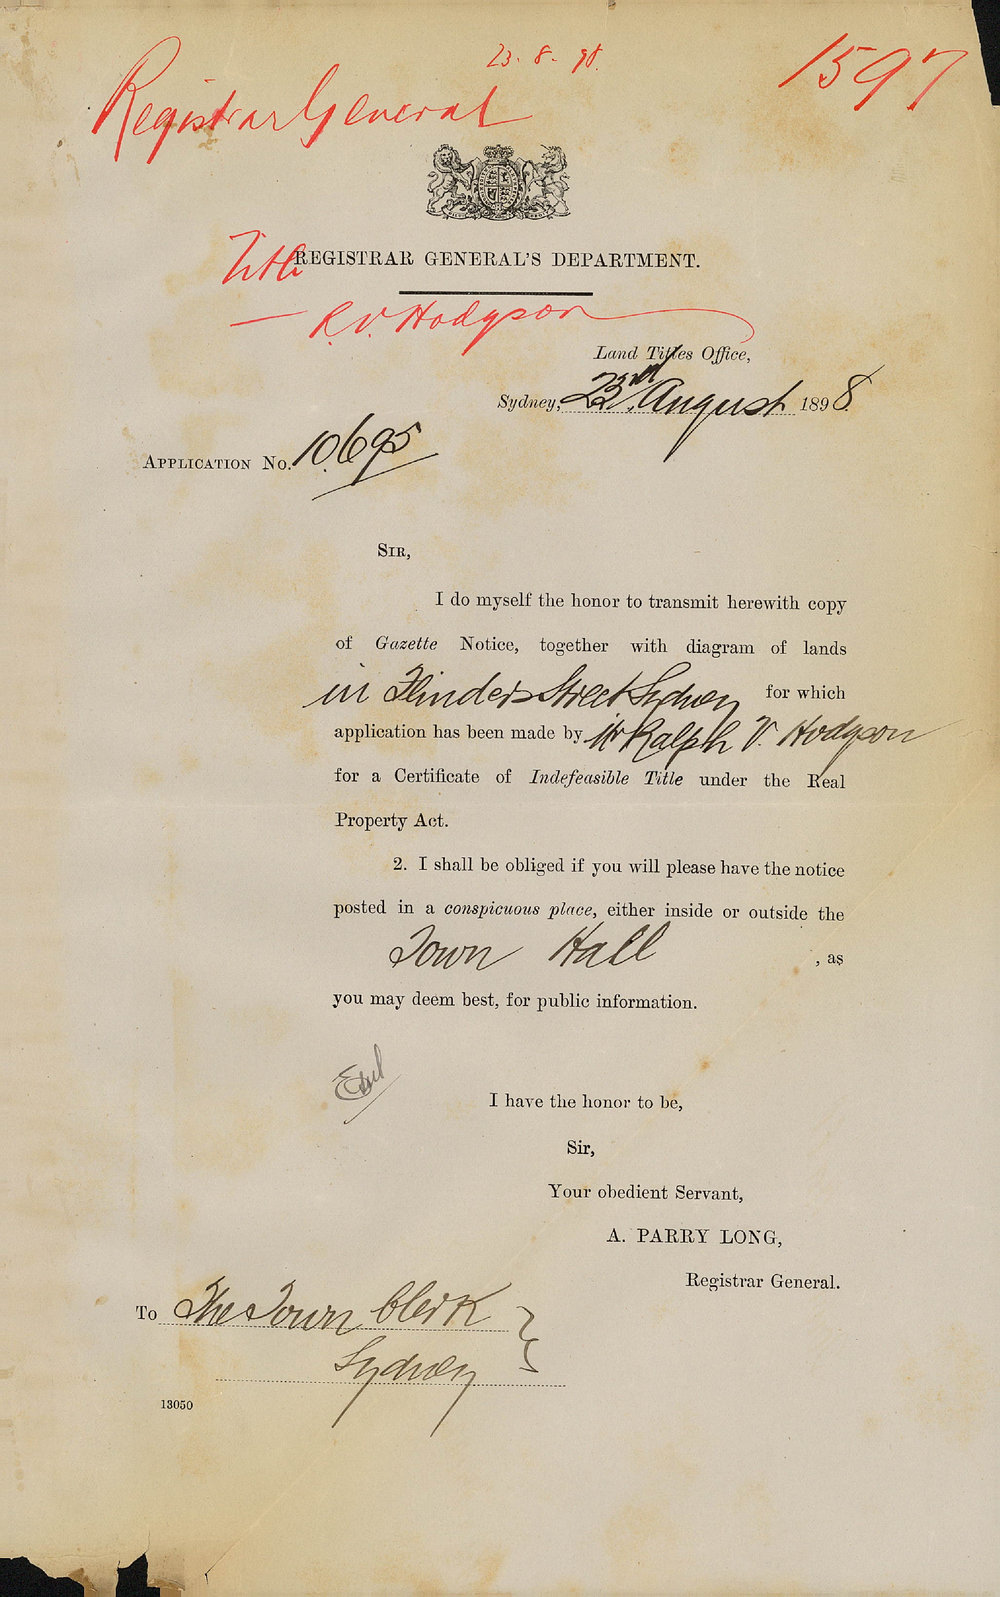 23. 8. 98.
1597
Registrar General
REGISTRAR GENERAL'S DEPARTMENT.
Title
R.V. Hodgson
Land Titles Office,
Sydney, 23rd. August 1898.
APPLICATION No. 10.695
SIR,
I do myself the honor to transmit herewith copy
of Gazette Notice, together with diagram of lands
in Flinders Street Sydney for which
application has been made by Mr Ralph V. Hodgson
for a Certificate of Indefeasible Title under the Real
Property Act.
2. I shall be obliged if you will please have the notice
posted in a conspicuous place, either inside or outside the
Town Hall , as
you may deem best, for public information.
I have the honor to be,
Sir,
Your obedient Servant,
A. PARRY LONG,
Registrar General.
To The Town Clerk
Sydney
13050